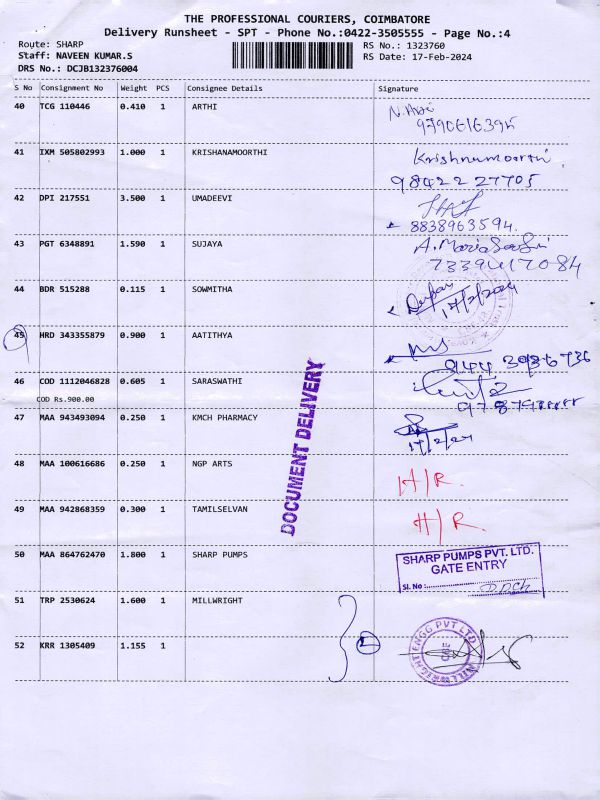 THE PROFESSIONAL COURIERS, COIMBATORE
Delivery Runsheet - SPT - Phone No.:0422-3505555 - Page No.:4
Route: SHARP RS No.: 1323760
Staff: NAVEEN KUMAR.S RS Date: 17-Feb-2024
DRS No.: DCJB132376004
S No Consignment No Weight PCS Consignee Details Signature
40 TCG 110446 0.410 1 ARTHI
41 IXM 505802993 1.000 1 KRISHANAMOORTHI Krishnamoorthi
98422 27705
42 DPI 217551 3.500 1 UMADEEVI
8838963594
43 PGT 6348891 1.590 1 SUJAYA
7339417084
44 BDR 515288 0.115 1 SOWMITHA
17/2/2024
45 HRD 343355879 0.900 1 AATITHYA
46 COD 1112046828 0.605 1 SARASWATHI
COD Rs.900.00
47 MAA 943493094 0.250 1 KMCH PHARMACY
17/2/24
DOCUMENT DELIVERY
48 MAA 100616686 0.250 1 NGP ARTS H/R.
49 MAA 942868359 0.300 1 TAMILSELVAN H/R.
50 MAA 864762470 1.800 1 SHARP PUMPS SHARP PUMPS PVT. LTD.
GATE ENTRY
Sl. No :
51 TRP 2530624 1.600 1 MILLWRIGHT
52 KRR 1305409 1.155 1 2
MILLWRIGHT ENGG PVT LTD